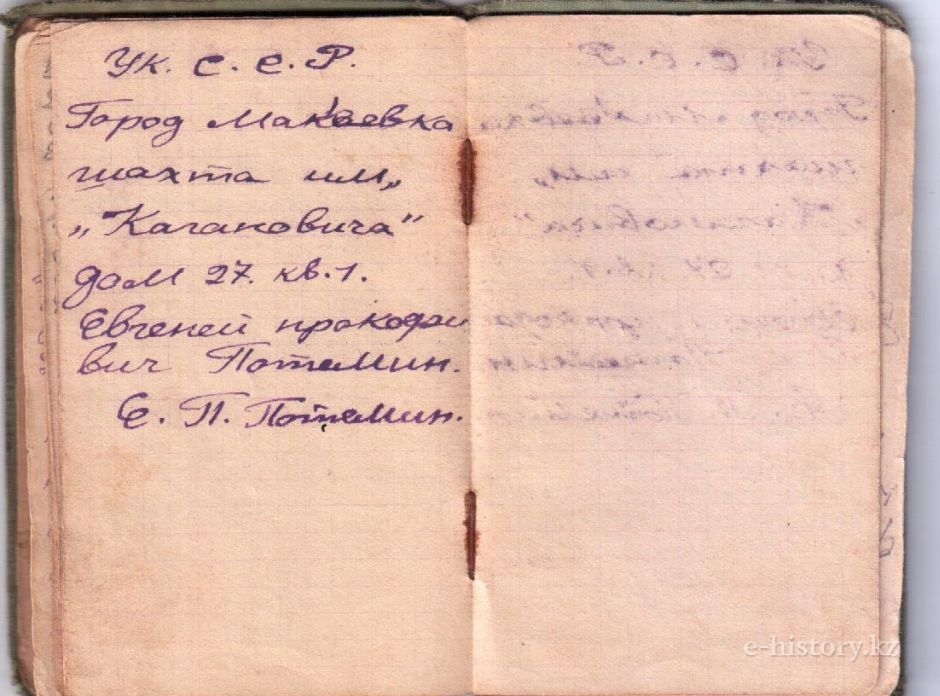 Ук. С. С. Р.
Город Макаевка
шахта им„
„Кагановича"
дом 27. кв. 1.
Евгеней прокофи
вич Потемин.
Е. П. Потемин.
e-history.kz